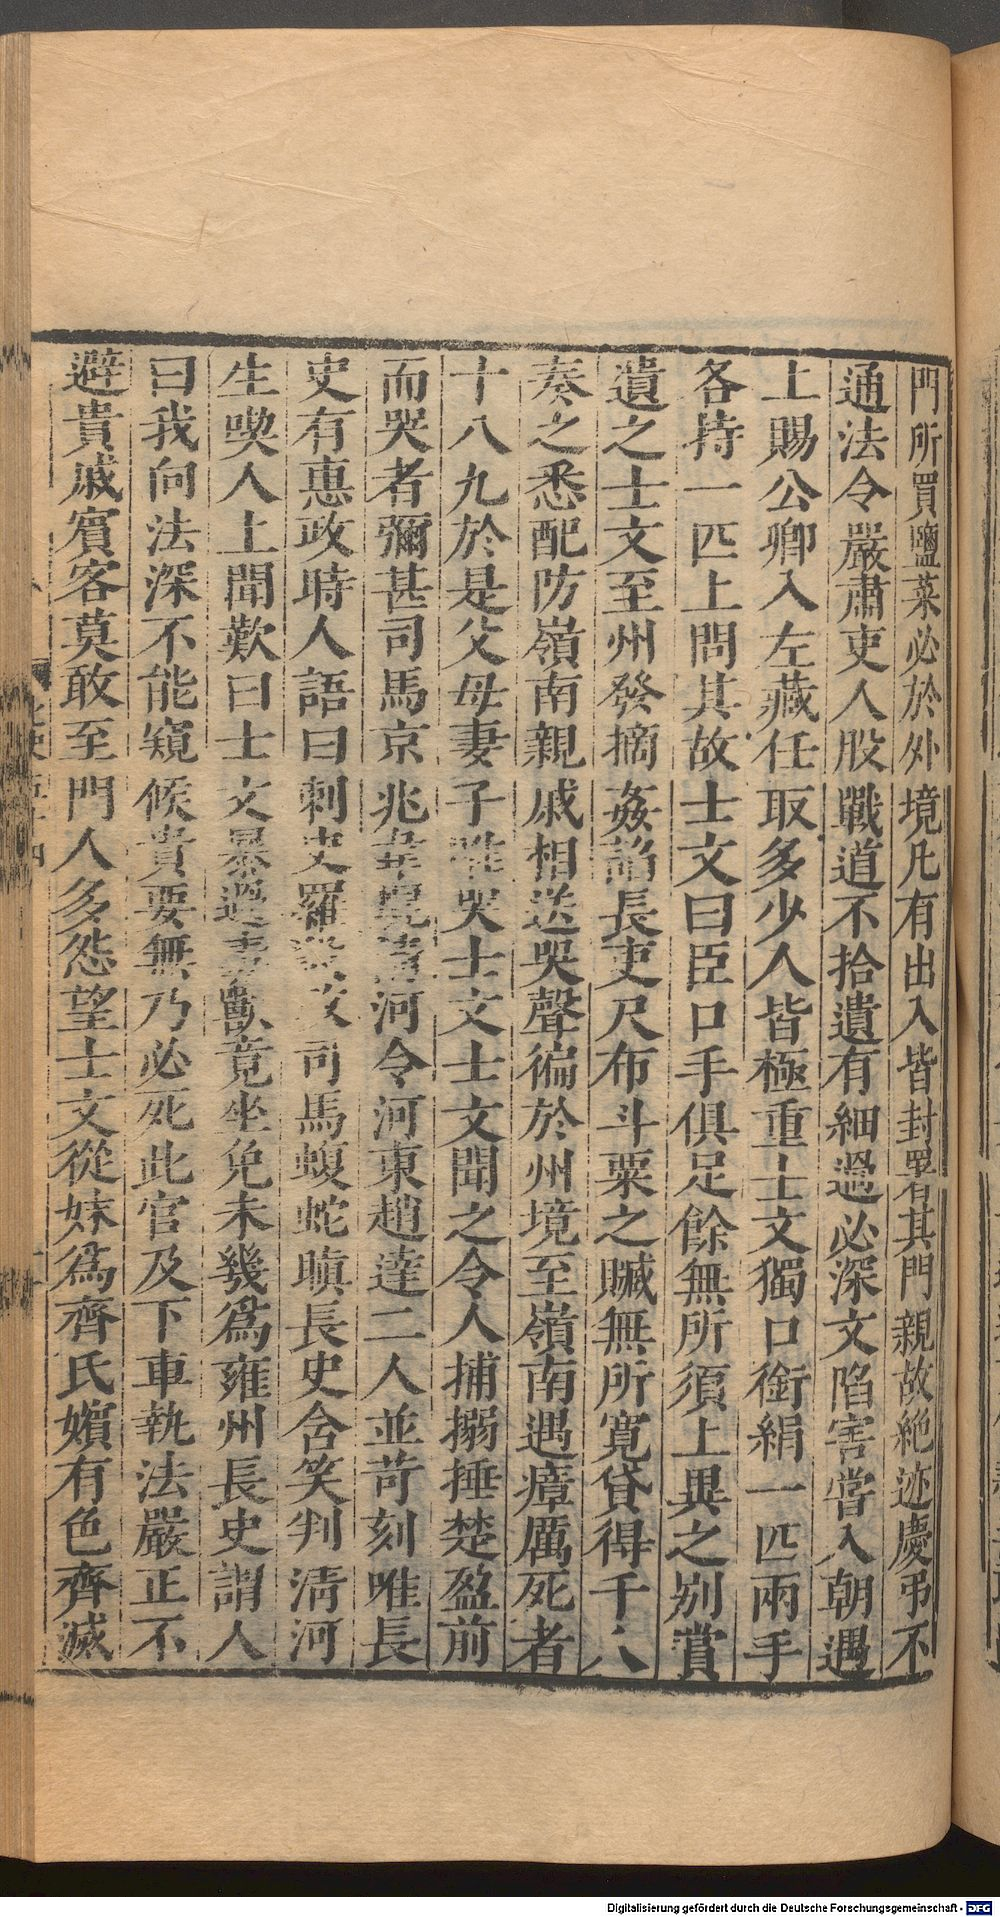 門所買鹽菜必於外境凡有出入皆封署其門親故絶迹慶弔不
通法令嚴肅吏人股戰道不拾遺有細過必深文陷害嘗入朝遇
上賜公卿入左藏任取多少人皆極重士文獨口銜絹一匹兩手
各持一匹上問其故士文曰臣口手俱足餘無所須上異之别賞
遺之士文至州發摘姦諂長吏尺布斗粟之贓無所寛貸得千人
奏之悉配防嶺南親戚相送哭聲徧於州境至嶺南遇瘴厲死者
十八九於是父母妻子唯哭士文士文聞之令人捕搦捶楚盈前
而哭者彌甚司馬京兆韋焜清河令河東趙達二人並苛刻唯長
史有惠政時人語曰刺史羅殺政司馬蝮蛇瞋長史含笑判清河
生喫人上聞歎曰士文暴過猛獸竟坐免未幾爲雍州長史謂人
曰我向法深不能窺候貴要無乃必死此官及下車執法嚴正不
避貴戚賓客莫敢至門人多怨望士文從妹爲齊氏嬪有色齊滅
Digitalisierung gefördert durch die Deutsche Forschungsgemeinschaft - DFG